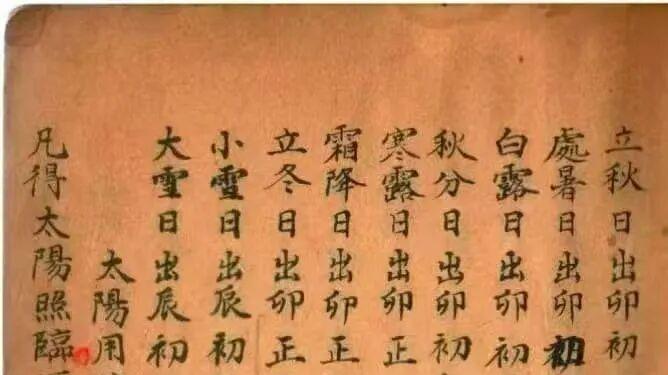 立秋日出卯初
處暑日出卯初
白露日出卯初
秋分日出卯初
寒露日出卯正
霜降日出卯正
立冬日出卯正
小雪日出辰初
大雪日出辰初
太陽用
凡得太陽照臨